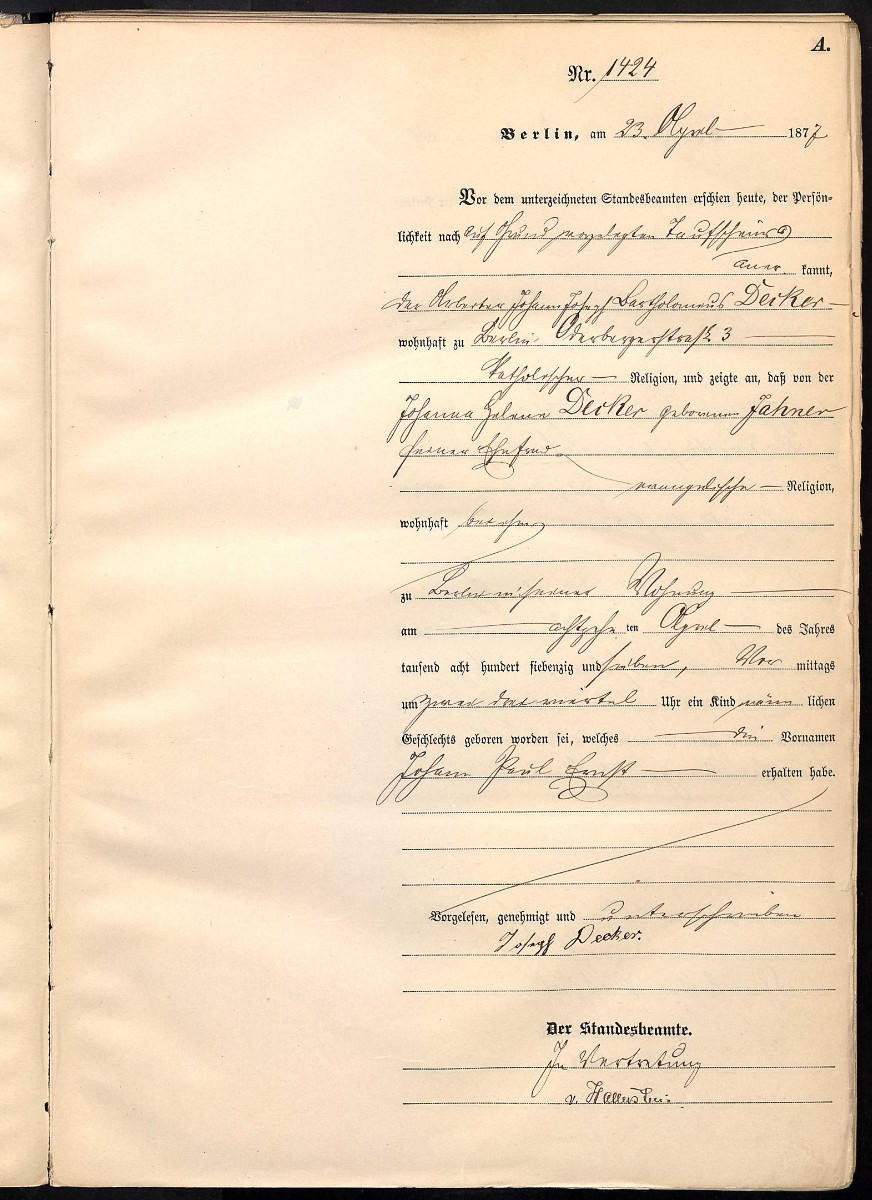 A.
Nr. 1424
Berlin, am 23. April 1877
Vor dem unterzeichneten Standesbeamten erschien heute, der Persön-
lichkeit nach auf Grund vorgelegten Taufscheins
aner kannt,
der Arbeiter Johann Joseph Bartholomeus Decker
wohnhaft zu Berlin, Oderbergerstraße 3
katholischer Religion, und zeigte an, daß von der
Johanna Helene Decker geborenen Jahner
seiner Ehefrau
evangelischer Religion,
wohnhaft bei ihm
zu Berlin in seiner Wohnung
am achtzehn ten April des Jahres
tausend acht hundert siebenzig und sieben, Vor mittags
um zwei drei viertel Uhr ein Kind männ lichen
Geschlechts geboren worden sei, welches die Vornamen
Johann Paul Ernst erhalten habe.
Vorgelesen, genehmigt und unterschrieben
Joseph Decker.
Der Standesbeamte.
In Vertretung
v.